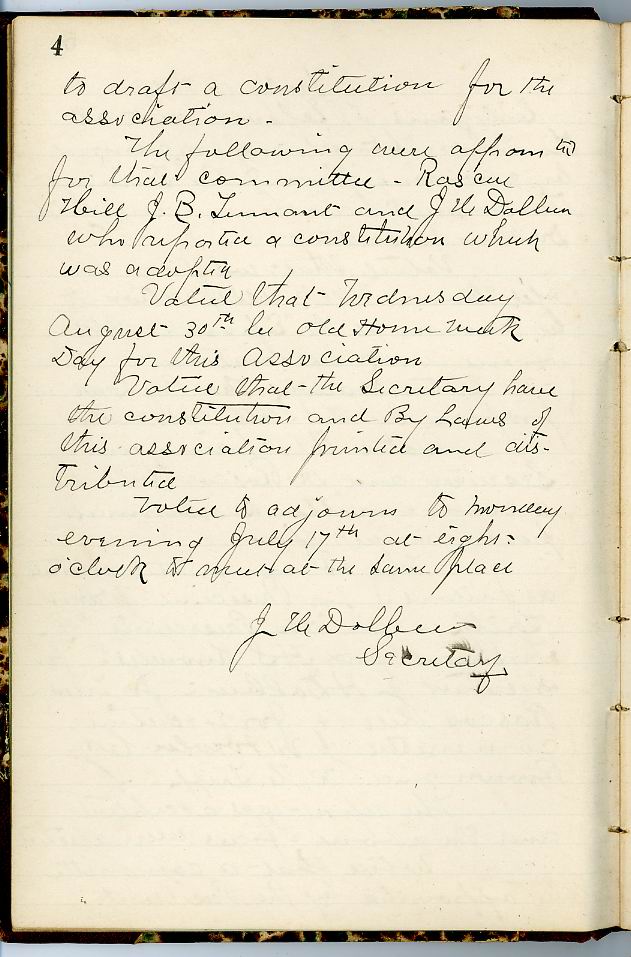 4
to draft a constitution for the
association -
The following were appointed
for that committee - Roscoe
Hill J. B. Tennant and J H Dolbeer
who reported a constitution which
was adopted
Voted that Wednesday
August 30th be old Home week
Day for this Association
Voted that the Secretary have
the constitution and By Laws of
this association printed and dis-
tributed
Voted to adjourn to Monday
evening July 17th at eight-
o'clock to meet at the same place
J H Dolbeer
Secretary